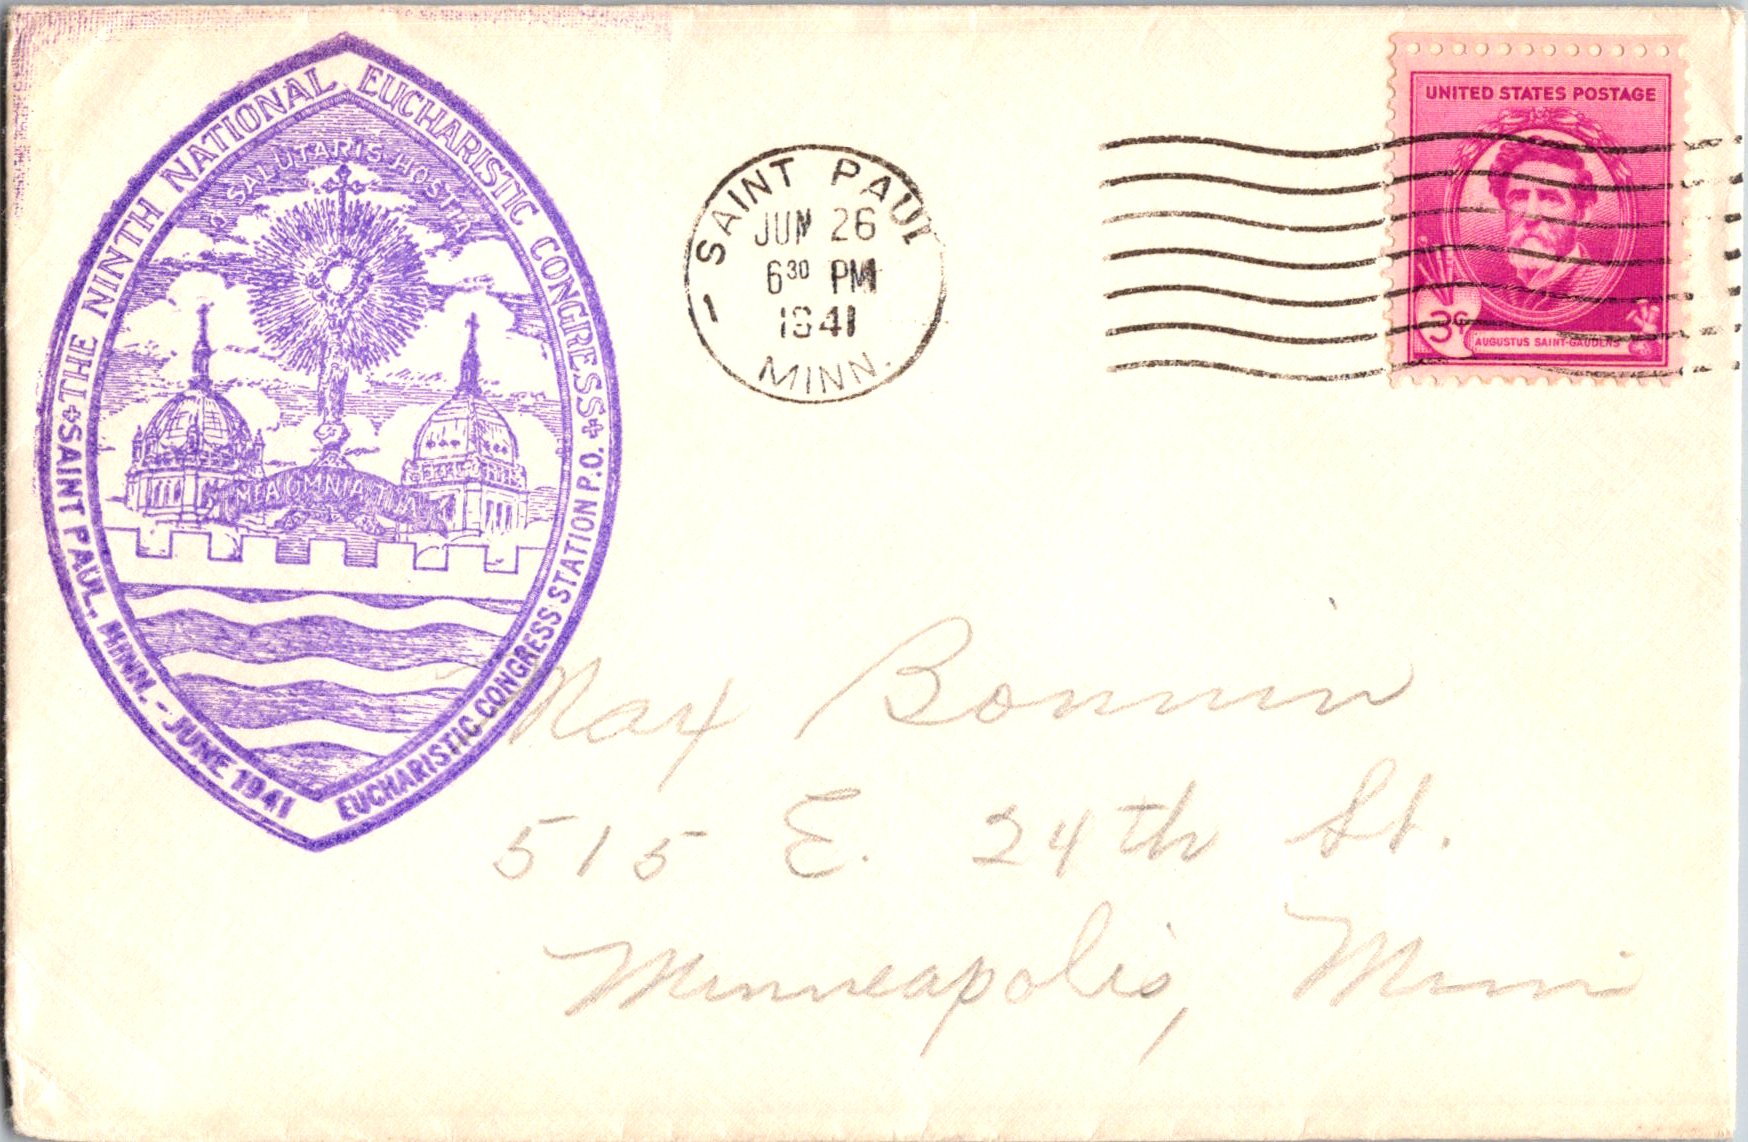 THE NINTH NATIONAL EUCHARISTIC CONGRESS
SALUTARIS HOSTIA
OMNIA
SAINT PAUL, MINN. - JUNE 1941
EUCHARISTIC CONGRESS STATION P.O.
SAINT PAUL
JUN 26
6 30 PM
1941
MINN.
1
UNITED STATES POSTAGE
3¢
AUGUSTUS SAINT-GAUDENS
Max Bonnin
515 E. 24th St.
Minneapolis, Minn